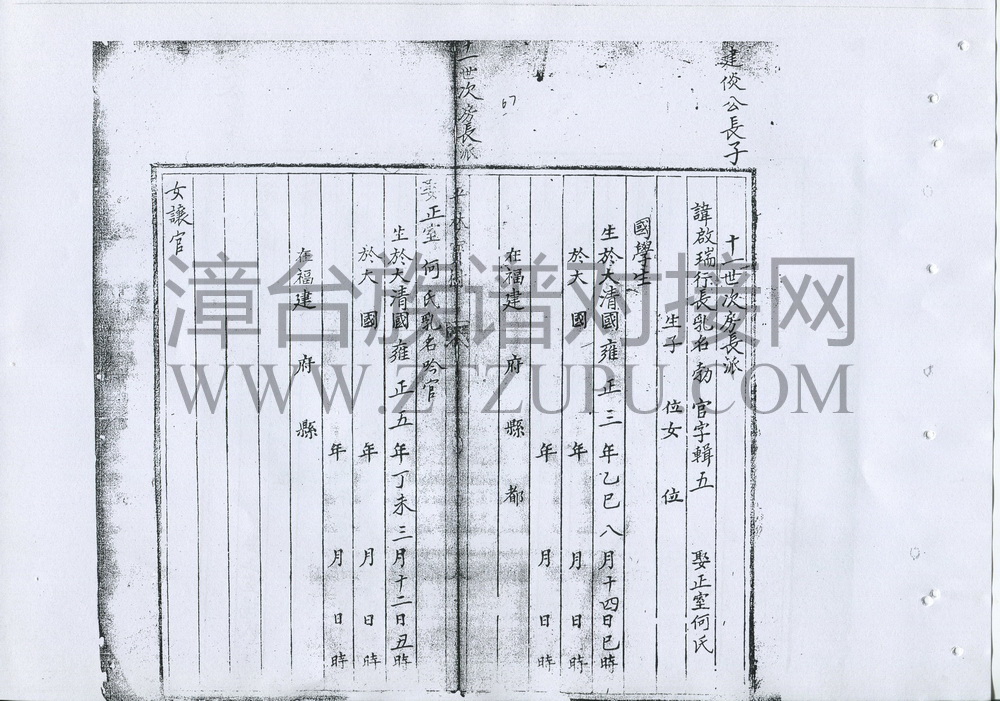 建倓公長子
十一世次房長派
諱啟瑞行長乳名勃 官字輯五 娶正室何氏
生子 位女 位
國學生
生於大清國雍正三年乙巳八月十四日巳時
於大 國 年 月 日 時
年 月 日 時
在福建 府 縣 都
67
十一世次房長派
娶正室 何氏乳名吟官
生於大清國雍正五年丁未三月十二日丑時
於大 國 年 月 日 時
年 月 日 時
在福建 府 縣
女讓官
漳台族谱对接网
WWW.ZTZUPU.COM